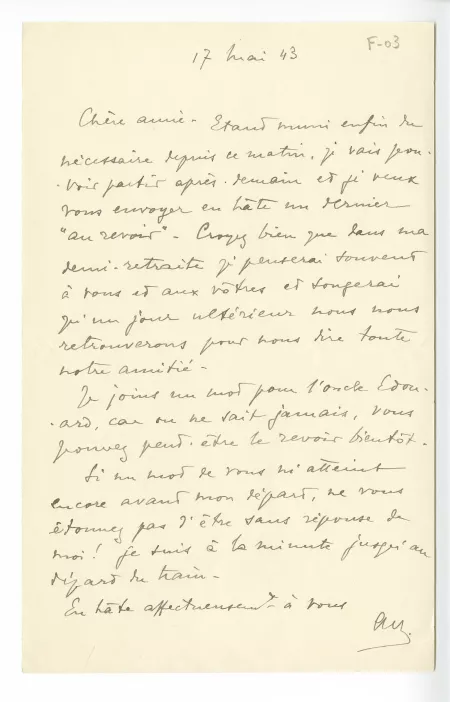 F-03
17 mai 43
Chère amie - Etant muni enfin du
nécessaire depuis ce matin, je vais pou-
-voir partir après-demain et je veux
vous envoyer en hâte un dernier
"au revoir" - Croyez bien que dans ma
demi-retraite je penserai souvent
à vous et aux vôtres et songerai
qu'un jour ultérieur nous nous
retrouverons pour nous dire toute
notre amitié -
Je joins un mot pour l'oncle Edou-
-ard, car on ne sait jamais, vous
pouvez peut-être le revoir bientôt -
Si un mot de vous m'atteint
encore avant mon départ, ne vous
étonnez pas d'être sans réponse de
moi ! je suis à la minute jusqu'au
départ du train -
En hâte affectueusemt à vous